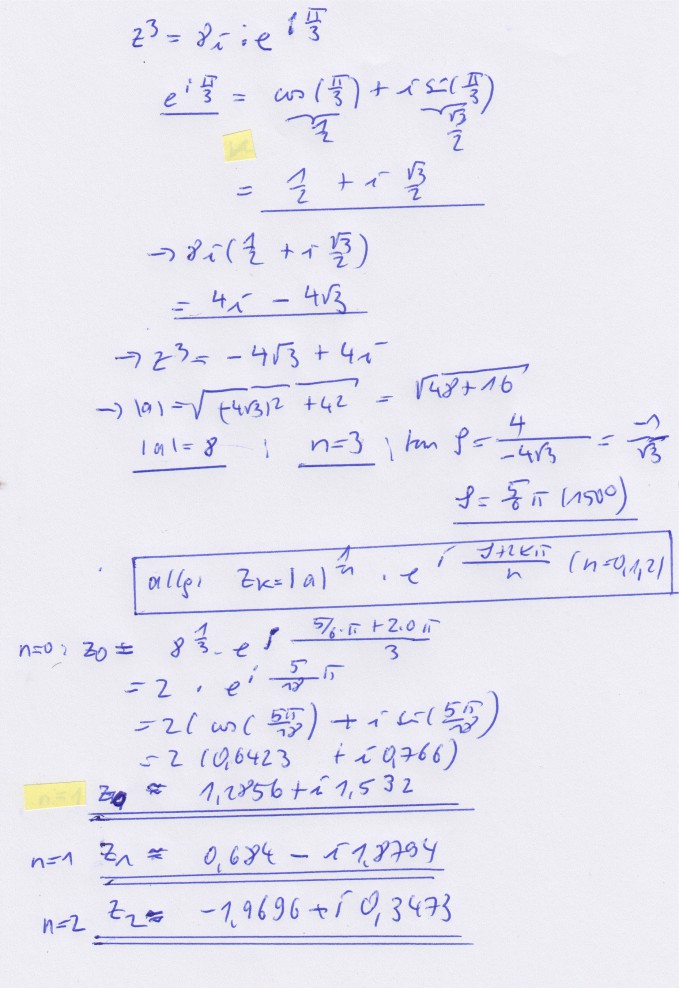 z³ = 8i · e^(i π/3)
e^(i π/3) = cos(π/3) + i sin(π/3)
1/2 √3/2
= 1/2 + i √3/2
→ 8i(1/2 + i √3/2)
= 4i - 4√3
→ z³ = -4√3 + 4i
→ |a| = √((-4√3)² + 4²) = √(48+16)
|a| = 8 ; n=3 ; tan φ = 4/(-4√3) = -1/√3
φ = 5/6 π (150°)
allg. z_k = |a|^(1/n) · e^(i (φ+2kπ)/n) (n=0,1,2)
n=0: z₀ = 8^(1/3) · e^(i (5/6·π + 2·0π)/3)
= 2 · e^(i 5/18 π)
= 2(cos(5π/18) + i sin(5π/18))
= 2(0,6423 + i 0,766)
n=1 z₀ ≈ 1,2856 + i 1,532
n=1 z₁ ≈ 0,684 - i 1,8794
n=2 z₂ ≈ -1,9696 + i 0,3473